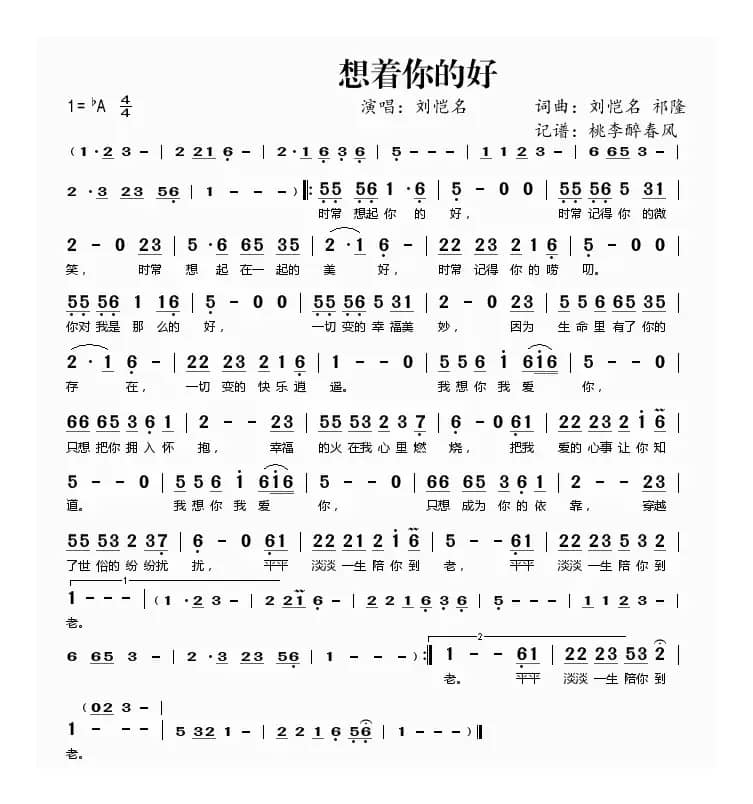 想着你的好
1=♭A 4/4 演唱：刘恺名 词曲：刘恺名 祁隆
记谱：桃李醉春风
（1·2 3 - | 2 21 6 - | 2·1 6 3 6 | 5 - - - | 1 1 2 3 - | 6 65 3 - |
2 ·3 23 56 | 1 - - - ) ‖: 55 56 1 ·6 | 5 - 0 0 | 55 56 5 31 |
时常 想起 你 的 好， 时常 记得 你 的微
2 - 0 23 | 5 ·6 65 35 | 2 ·1 6 - | 22 23 2 1 6 | 5 - 0 0 |
笑， 时常 想 起 在一 起的 美 好， 时常 记得 你 的 唠 叨。
55 56 1 16 | 5 - 0 0 | 55 56 5 31 | 2 - 0 23 | 5 56 65 35 |
你对 我是 那 么的 好， 一切 变的 幸 福美 妙， 因为 生 命里 有了 你的
2 · 1 6 - | 22 23 2 1 6 | 1 - - 0 | 5 5 6 1 616 | 5 - - 0 |
存 在， 一切 变的 快 乐 逍 遥。 我 想 你 我 爱 你，
66 65 3 6 1 | 2 - - 23 | 55 53 2 3 7 | 6 - 0 61 | 22 23 2 1 6 |
只想 把你 拥 入 怀 抱， 幸福 的火 在我 心 里 燃 烧， 把我 爱的 心事 让 你 知
5 - - 0 | 5 5 6 1 616 | 5 - - 0 | 66 65 3 6 1 | 2 - - 23 |
道。 我 想 你 我 爱 你， 只想 成为 你 的 依 靠， 穿越
55 53 2 37 | 6 - 0 61 | 22 21 2 1 6 | 5 - - 61 | 22 23 53 5 |
了世 俗的 纷 纷扰 扰， 平平 淡淡 一生 陪 你 到 老， 平平 淡淡 一生 陪你 到
1
1 - - - | （1 ·2 3 - | 2 21 6 - | 2 21 6 3 6 | 5 - - - | 1 1 2 3 - |
老。
6 65 3 - | 2 ·3 23 56 | 1 - - - ) :‖ 2 1 - - 61 | 22 23 53 2 |
老。 平平 淡淡 一生 陪你 到
（02 3 - |
1 - - - | 5 32 1 - | 2 2 1 6 56 | 1 - - - ) ‖
老。